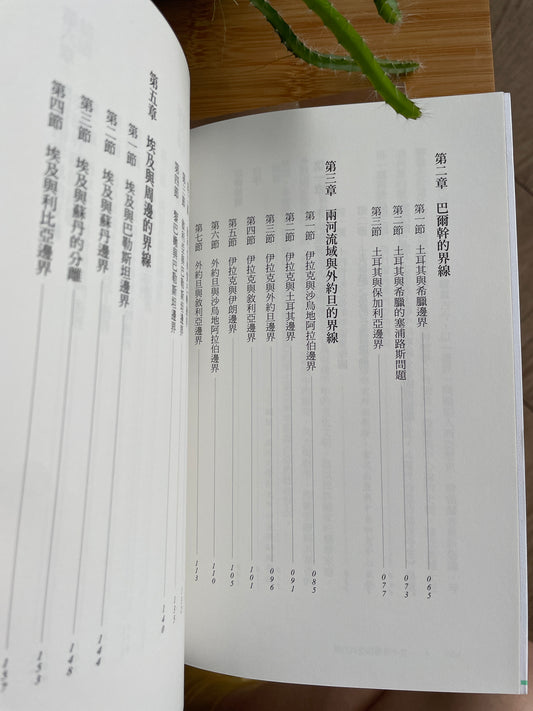 第二章 巴爾幹的界線
第一節 土耳其與希臘邊界 065
第二節 土耳其與希臘的塞浦路斯問題 073
第三節 土耳其與保加利亞邊界 077
第三章 兩河流域與外約旦的界線
第一節 伊拉克與沙烏地阿拉伯邊界 085
第二節 伊拉克與土耳其邊界 091
第三節 伊拉克與外約旦邊界 096
第四節 伊拉克與敘利亞邊界 101
第五節 伊拉克與伊朗邊界 105
第六節 外約旦與沙烏地阿拉伯邊界 110
第七節 外約旦與敘利亞邊界 113
第四節 黎巴嫩與巴勒斯坦邊界 140
第五章 埃及與周邊的界線
第一節 埃及與巴勒斯坦邊界 144
第二節 埃及與蘇丹邊界 148
第三節 埃及與蘇丹的分離 153
第四節 埃及與利比亞邊界 157